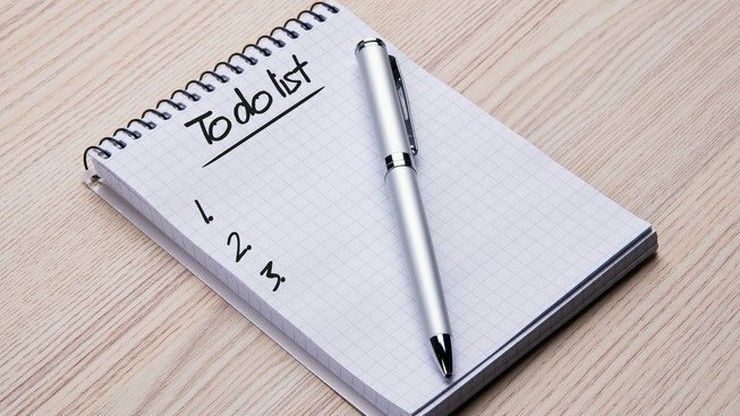 To do list
1.
2.
3.